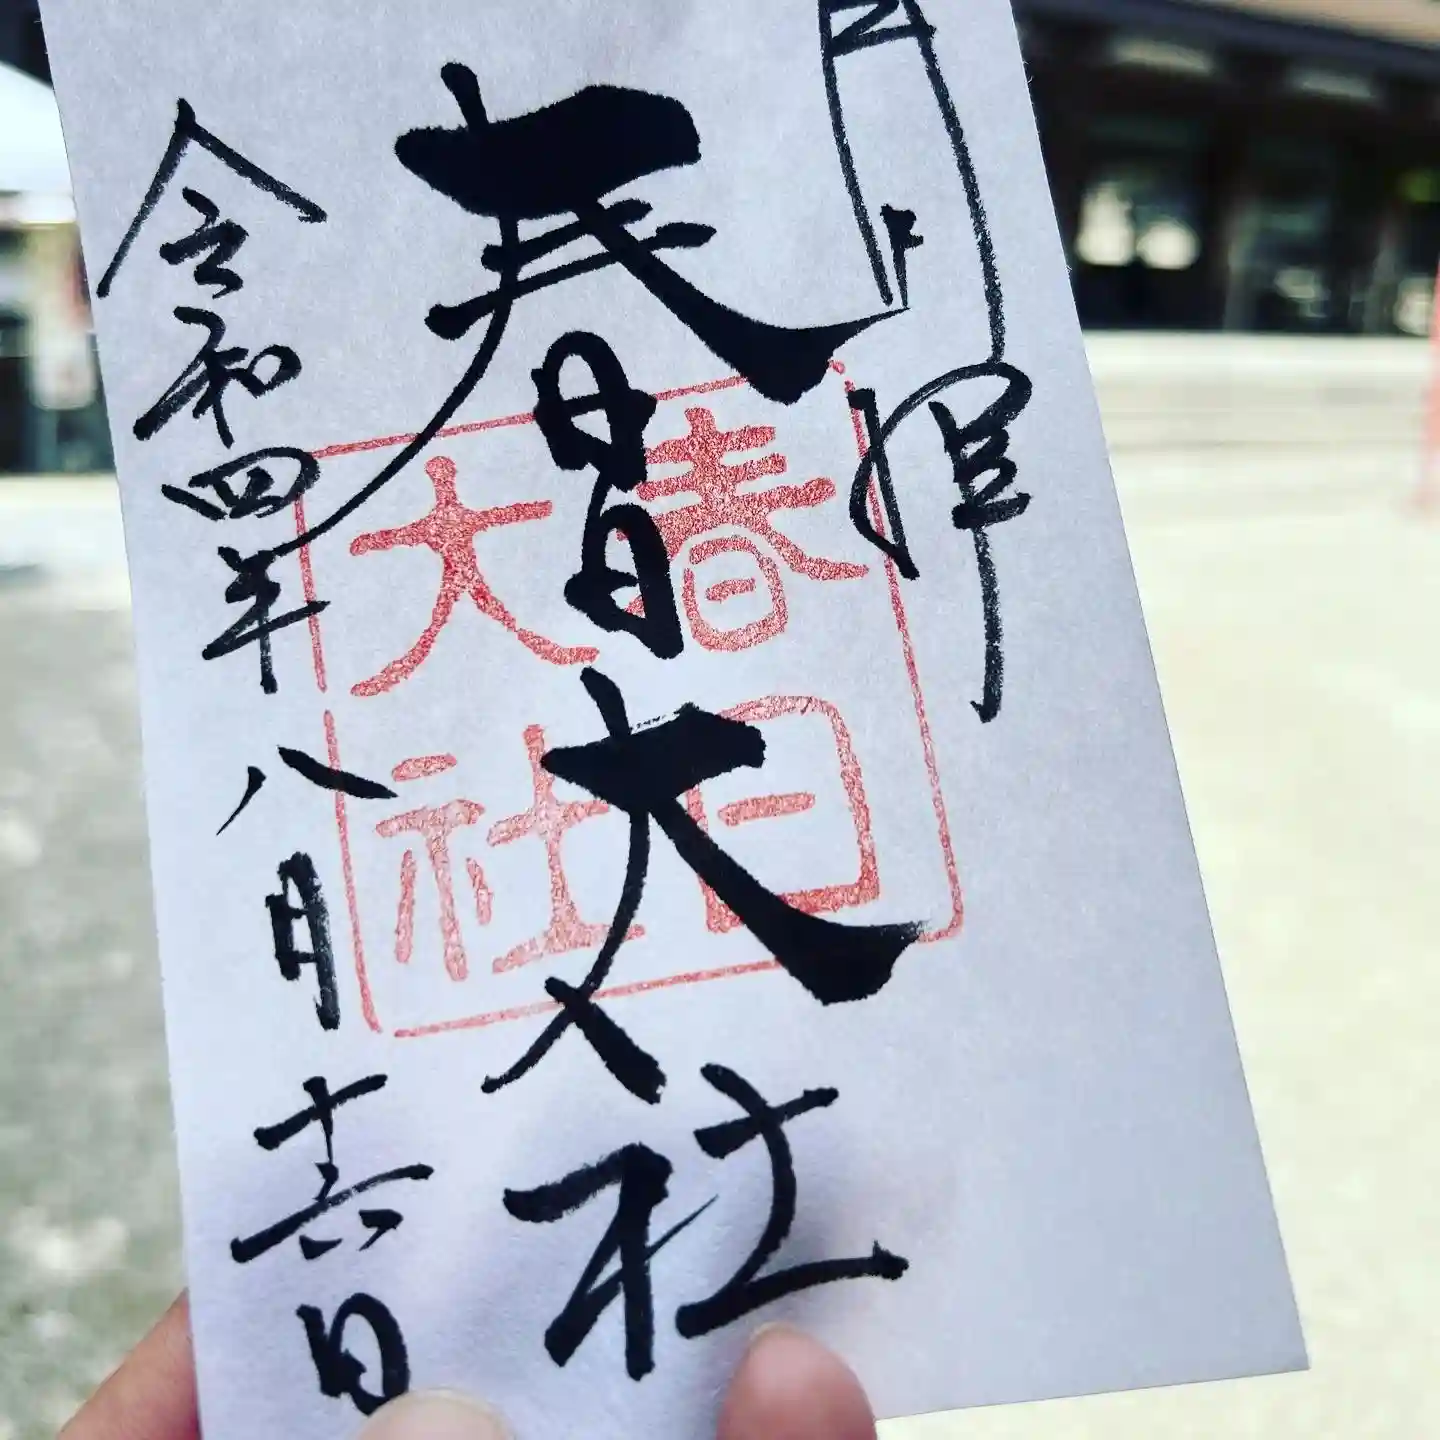 拝
春日大社
令和四年八月十六日
春日
大社